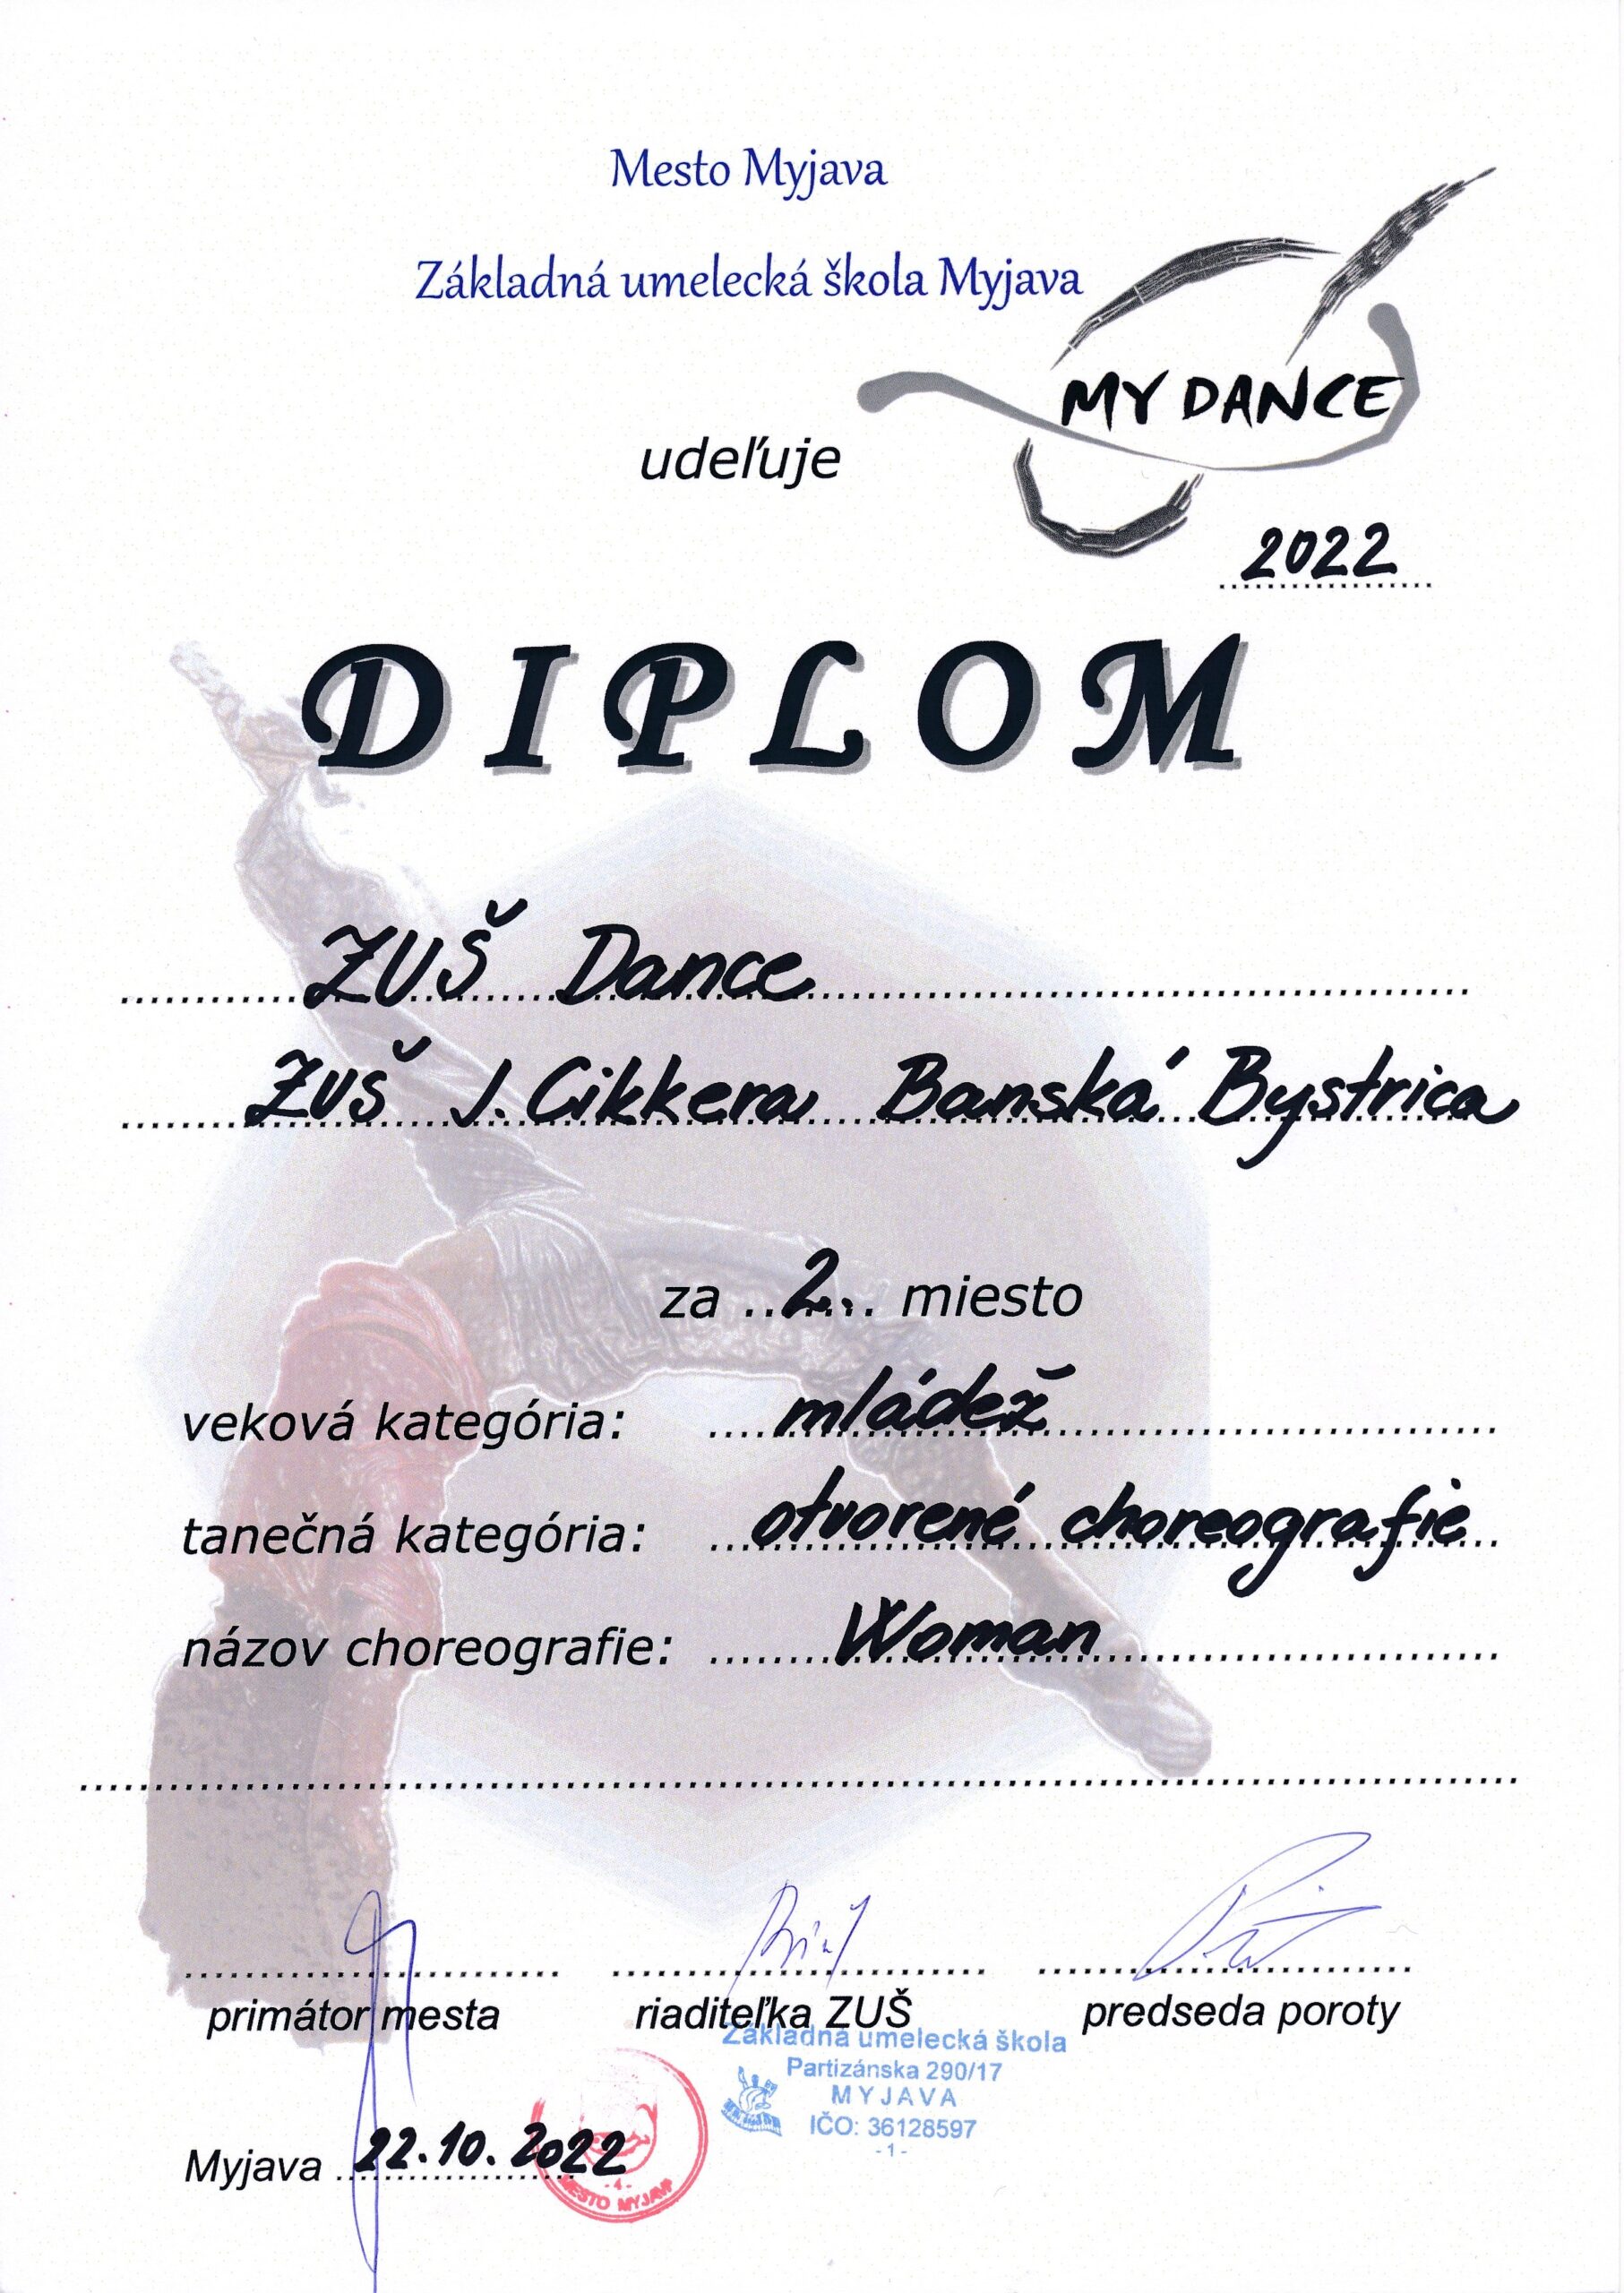 Mesto Myjava
Základná umelecká škola Myjava
MY DANCE
udeľuje
2022
DIPLOM
ZUŠ Dance
ZUŠ J. Cikkera Banská Bystrica
za 2. miesto
veková kategória: mládež
tanečná kategória: otvorené choreografie
názov choreografie: Woman
primátor mesta
riaditeľka ZUŠ
predseda poroty
Základná umelecká škola
Partizánska 290/17
MYJAVA
IČO: 36128597
- 1 -
Myjava 22.10.2022
- 4 -
MESTO MYJAVA